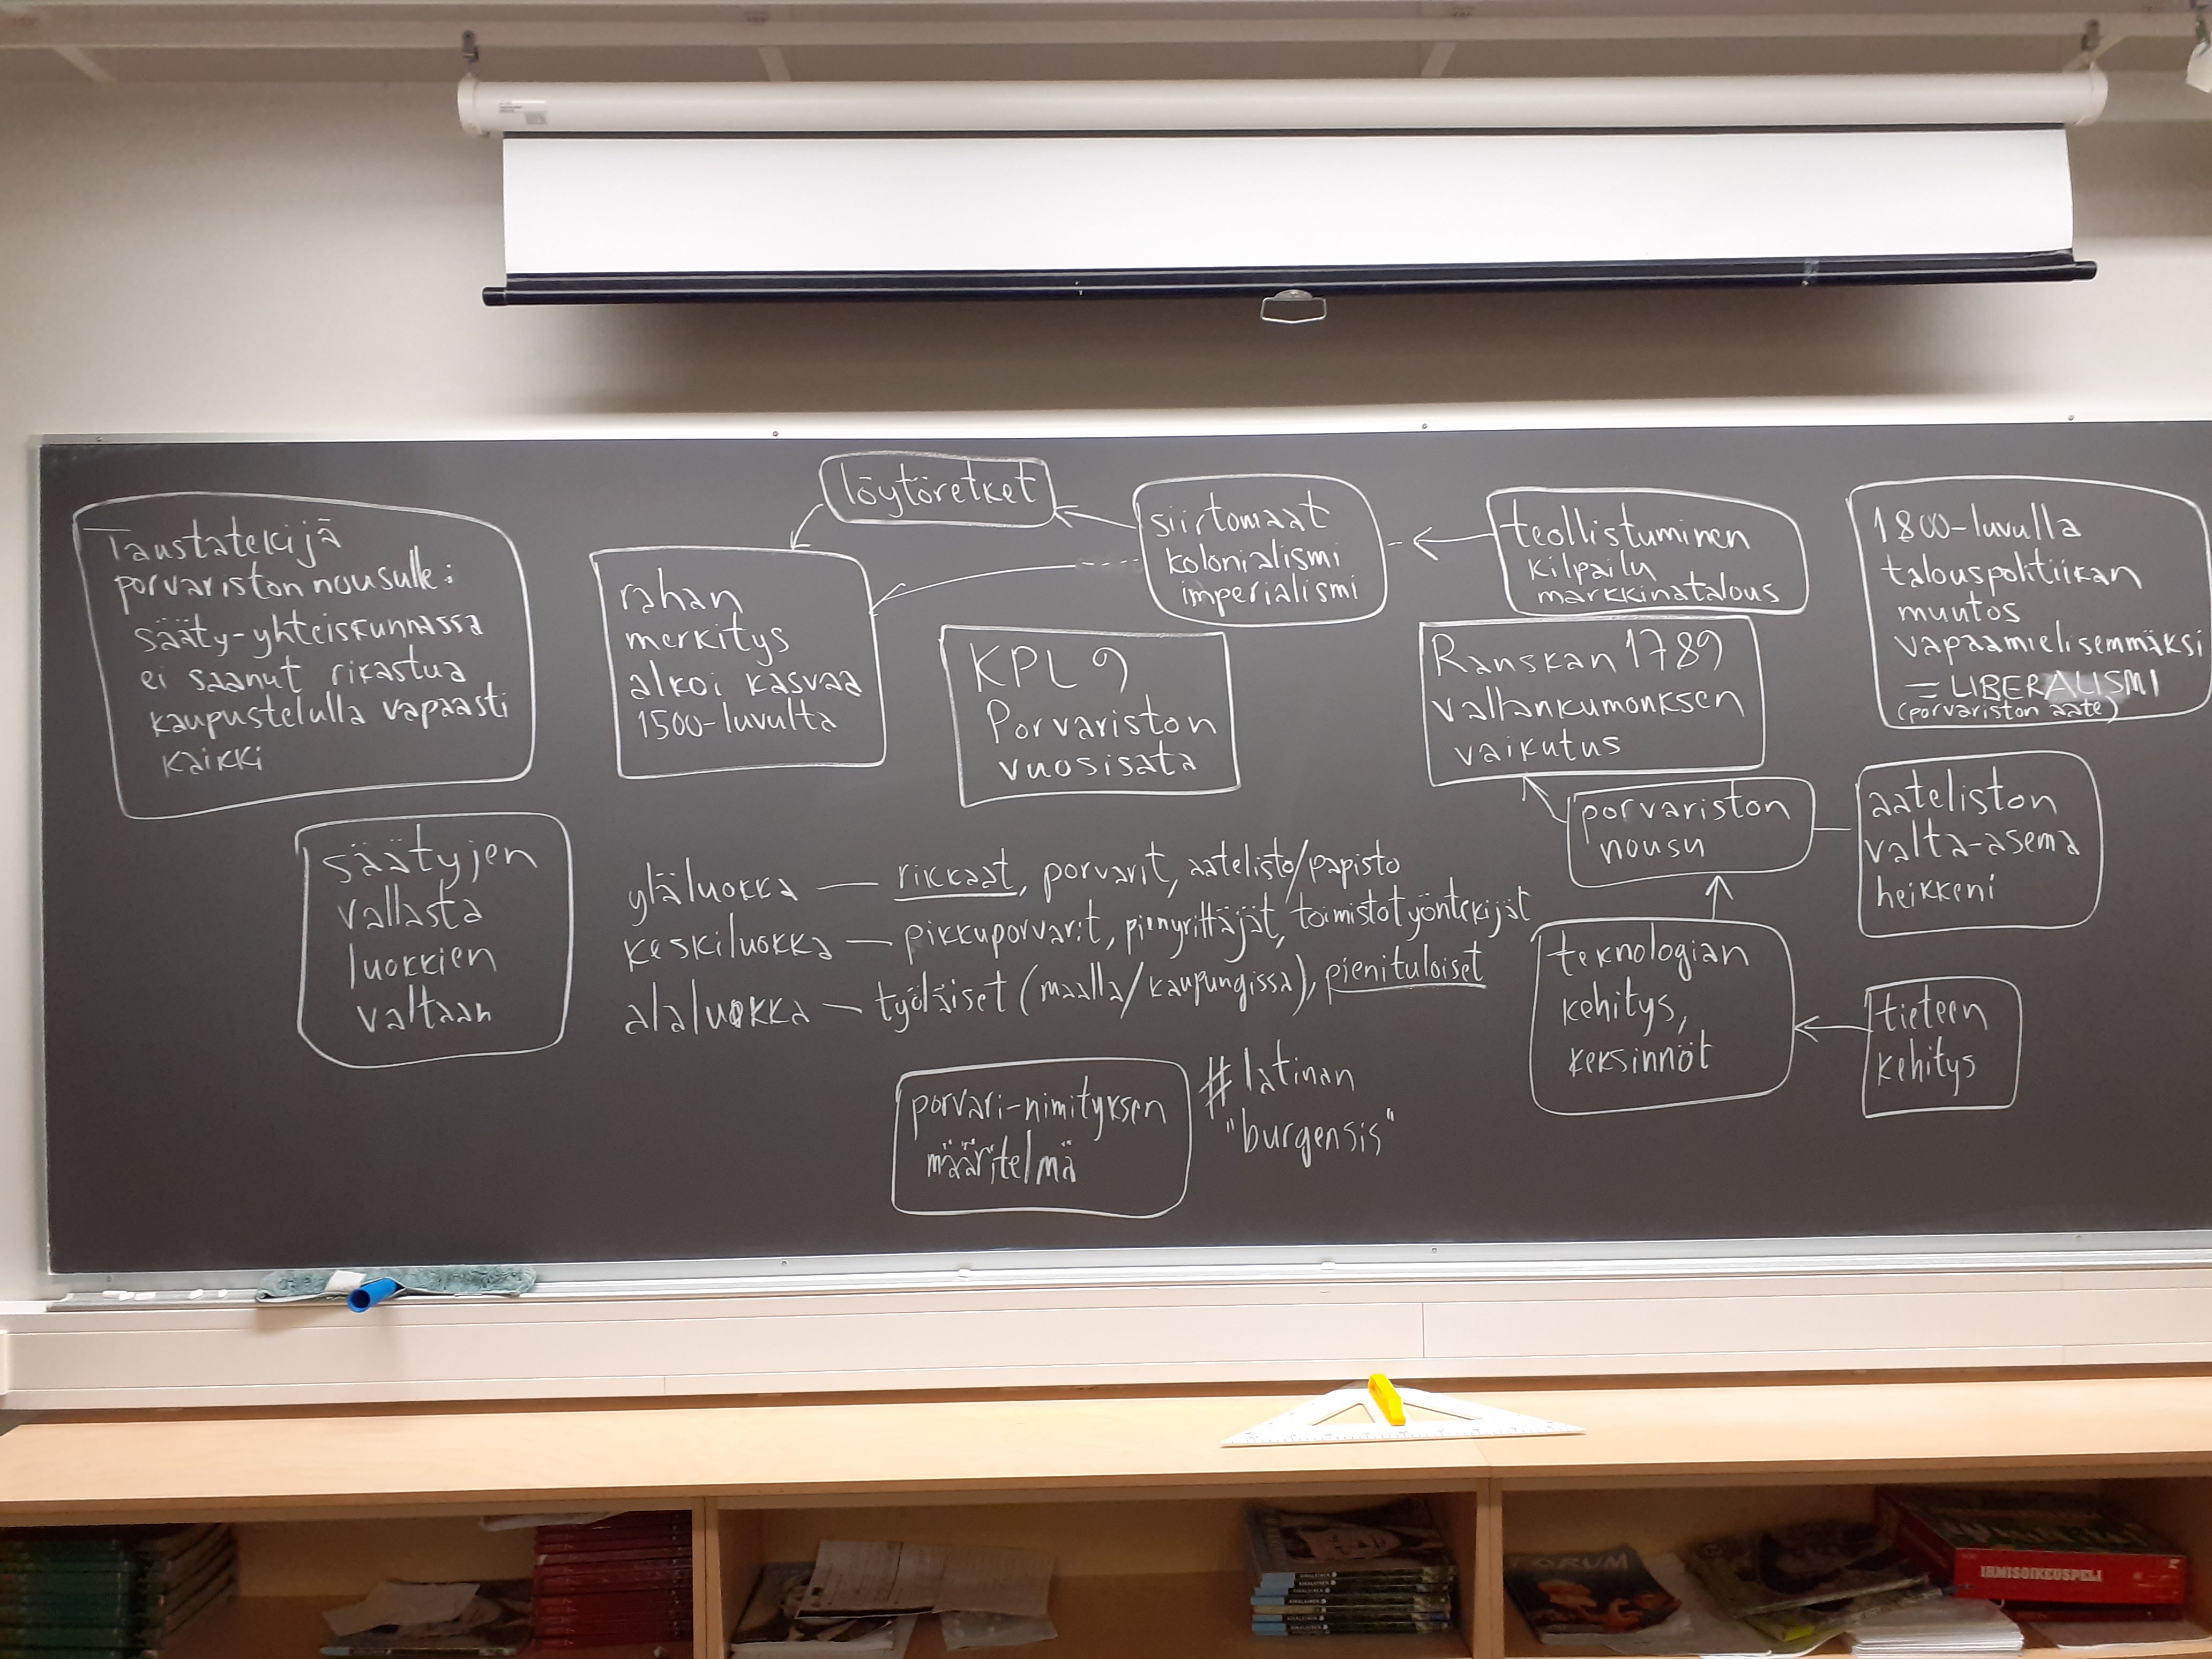 Taustatekijä
porvariston nousulle:
sääty-yhteiskunnassa
ei saanut rikastua
kaupustelulla vapaasti
kaikki
säätyjen
vallasta
luokkien
valtaan
löytöretket
rahan
merkitys
alkoi kasvaa
1500-luvulta
siirtomaat
kolonialismi
imperialismi
KPL 9
Porvariston
vuosisata
teollistuminen
kilpailu
markkinatalous
Ranskan 1789
vallankumouksen
vaikutus
1800-luvulla
talouspolitiikan
muutos
vapaamielisemmäksi
= LIBERALISMI
(porvariston aate)
porvariston
nousu
aateliston
valta-asema
heikkeni
yläluokka — rikkaat, porvarit, aatelisto/papisto
keskiluokka — pikkuporvarit, pienyrittäjät, toimistotyöntekijät
alaluokka — työläiset (maalla/kaupungissa), pienituloiset
teknologian
kehitys,
keksinnöt
tieteen
kehitys
porvari-nimityksen
määritelmä
# latinan
"burgensis"
FORUM
IHMISOIKEUSPELI